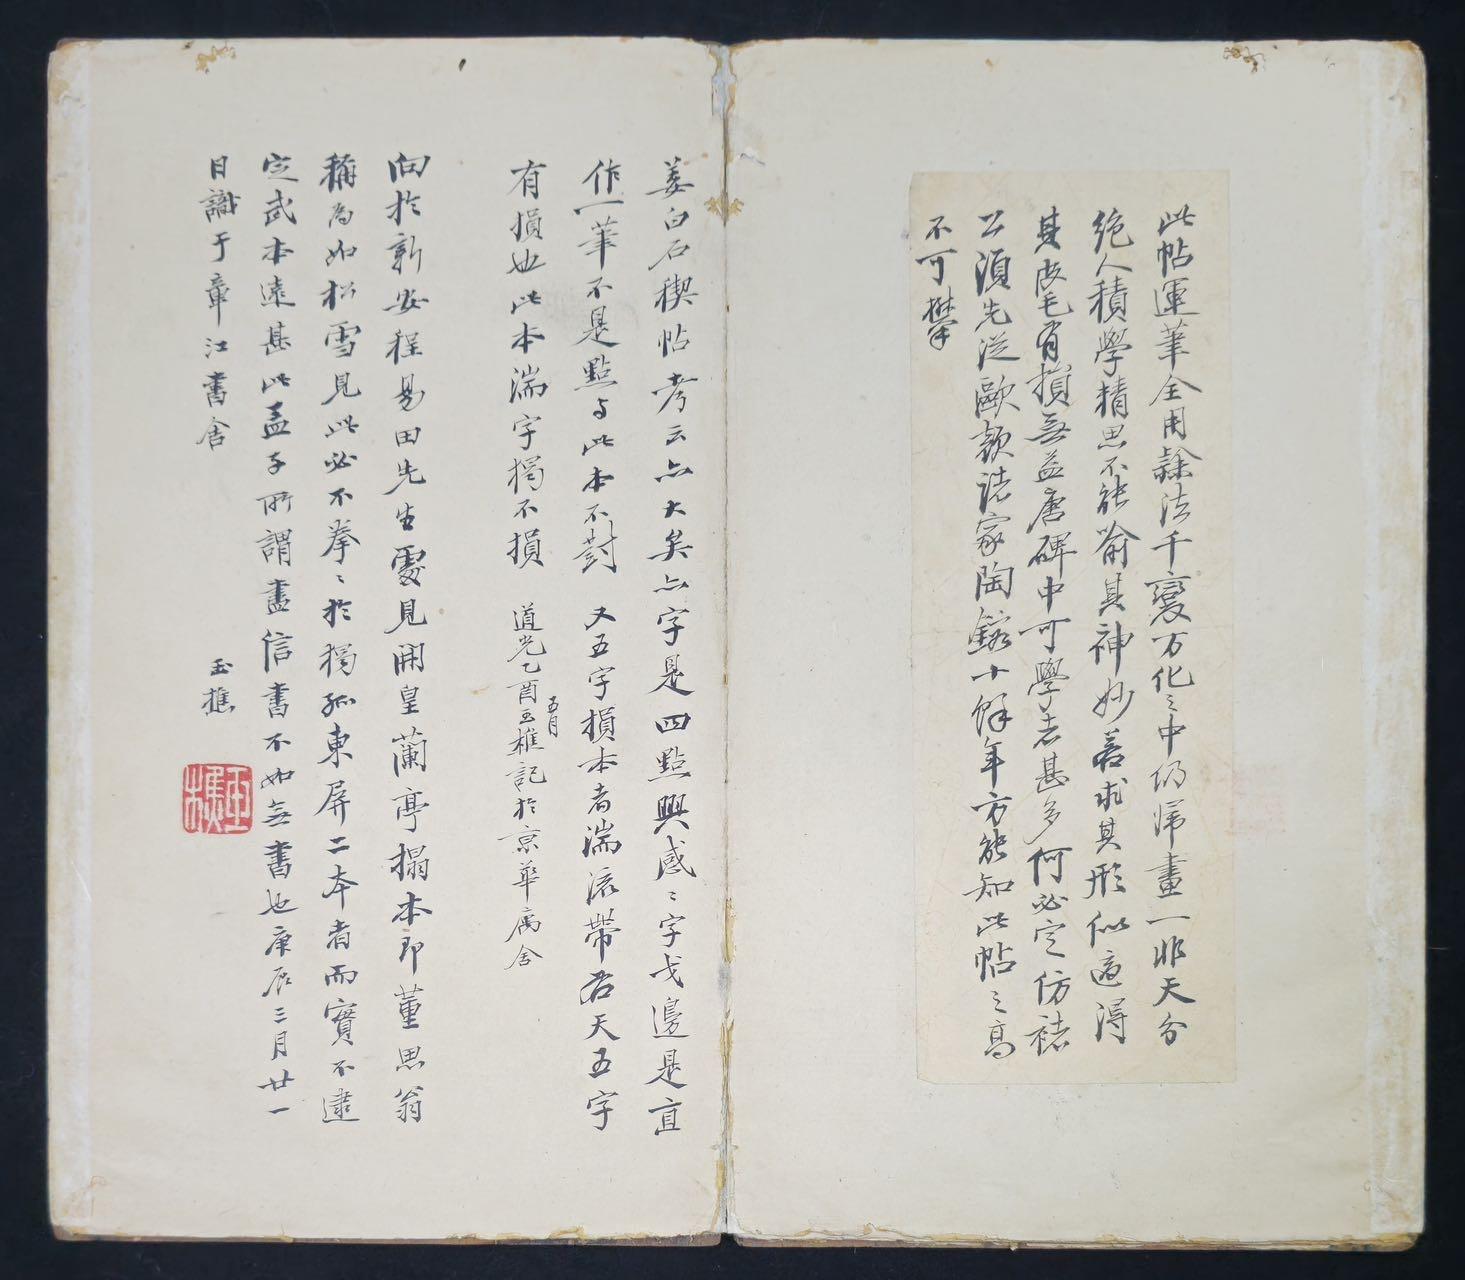 此帖運筆全用隸法千變万化之中仍歸畫一非天分
絶人積學精思不能喻其神妙若求其形似適得
其皮毛有損無益唐碑中可學者甚多何必定仿褚
公須先從歐顏諸家陶鎔十餘年方能知此帖之高
不可攀
姜白石禊帖考云亦大矣亦字是四點興感〻字戈邊是直
作一筆不是點与此本不對 又五字損本者湍流帶右天五字
有損也此本湍字獨不損 道光乙酉五月玉樵記於京華寓舍
向於新安程易田先生處見開皇蘭亭搨本即董思翁
稱為如松雪見此必不拳〻於獨孤東屏二本者而實不逮
定武本遠甚此孟子所謂盡信書不如無書也庚辰三月廿一
日識于章江書舍
玉樵
玉樵